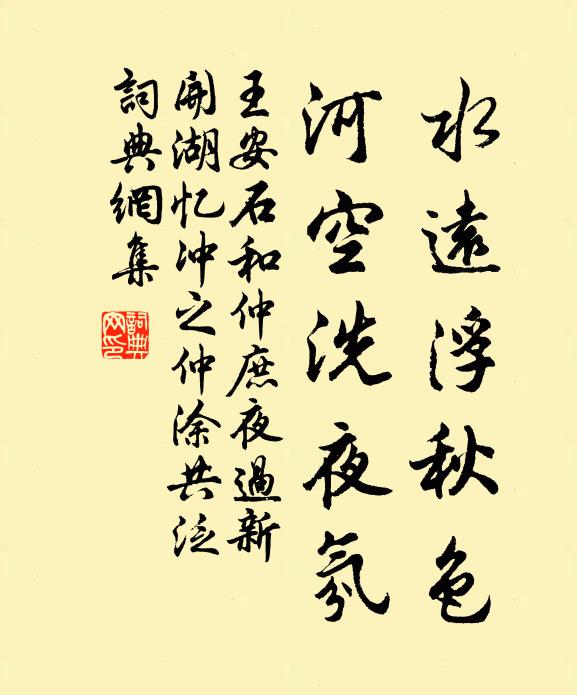 水遠浮秋色
河空洗夜氛
王安石和仲庶夜過新
開湖忆冲之仲涂共泛
詞典網集
詞典
网印